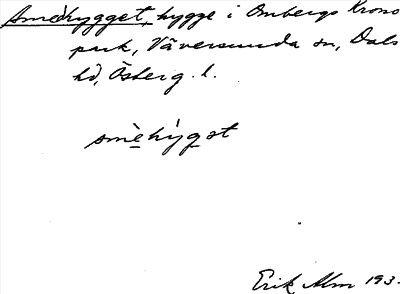 Smedhygget, hygge i Ombergs Krono
park, Väversunda sn, Dals
hd, Österg. l.
smèhýgət
Erik Alm 193.